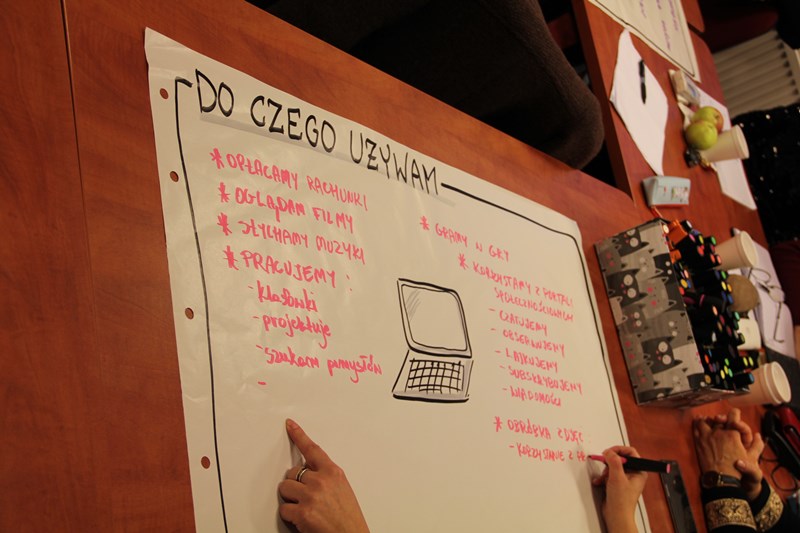 DO CZEGO UŻYWAM
* OPŁACAMY RACHUNKI
* OGLĄDAM FILMY
* SŁYCHAMY MUZYKI
* PRACUJEMY:
- klasówki
- projektuje
- szukam pomysłów
-
* GRAMY W GRY
* KORZYSTAMY Z PORTALI
SPOŁECZNOŚCIOWYCH
- CZATUJEMY
- OBSERWUJEMY
- LAJKUJEMY
- SUBSKRYBUJEMY
- WIADOMOŚCI
* OBRÓBKA ZDJĘĆ
- KORZYSTANIE Z